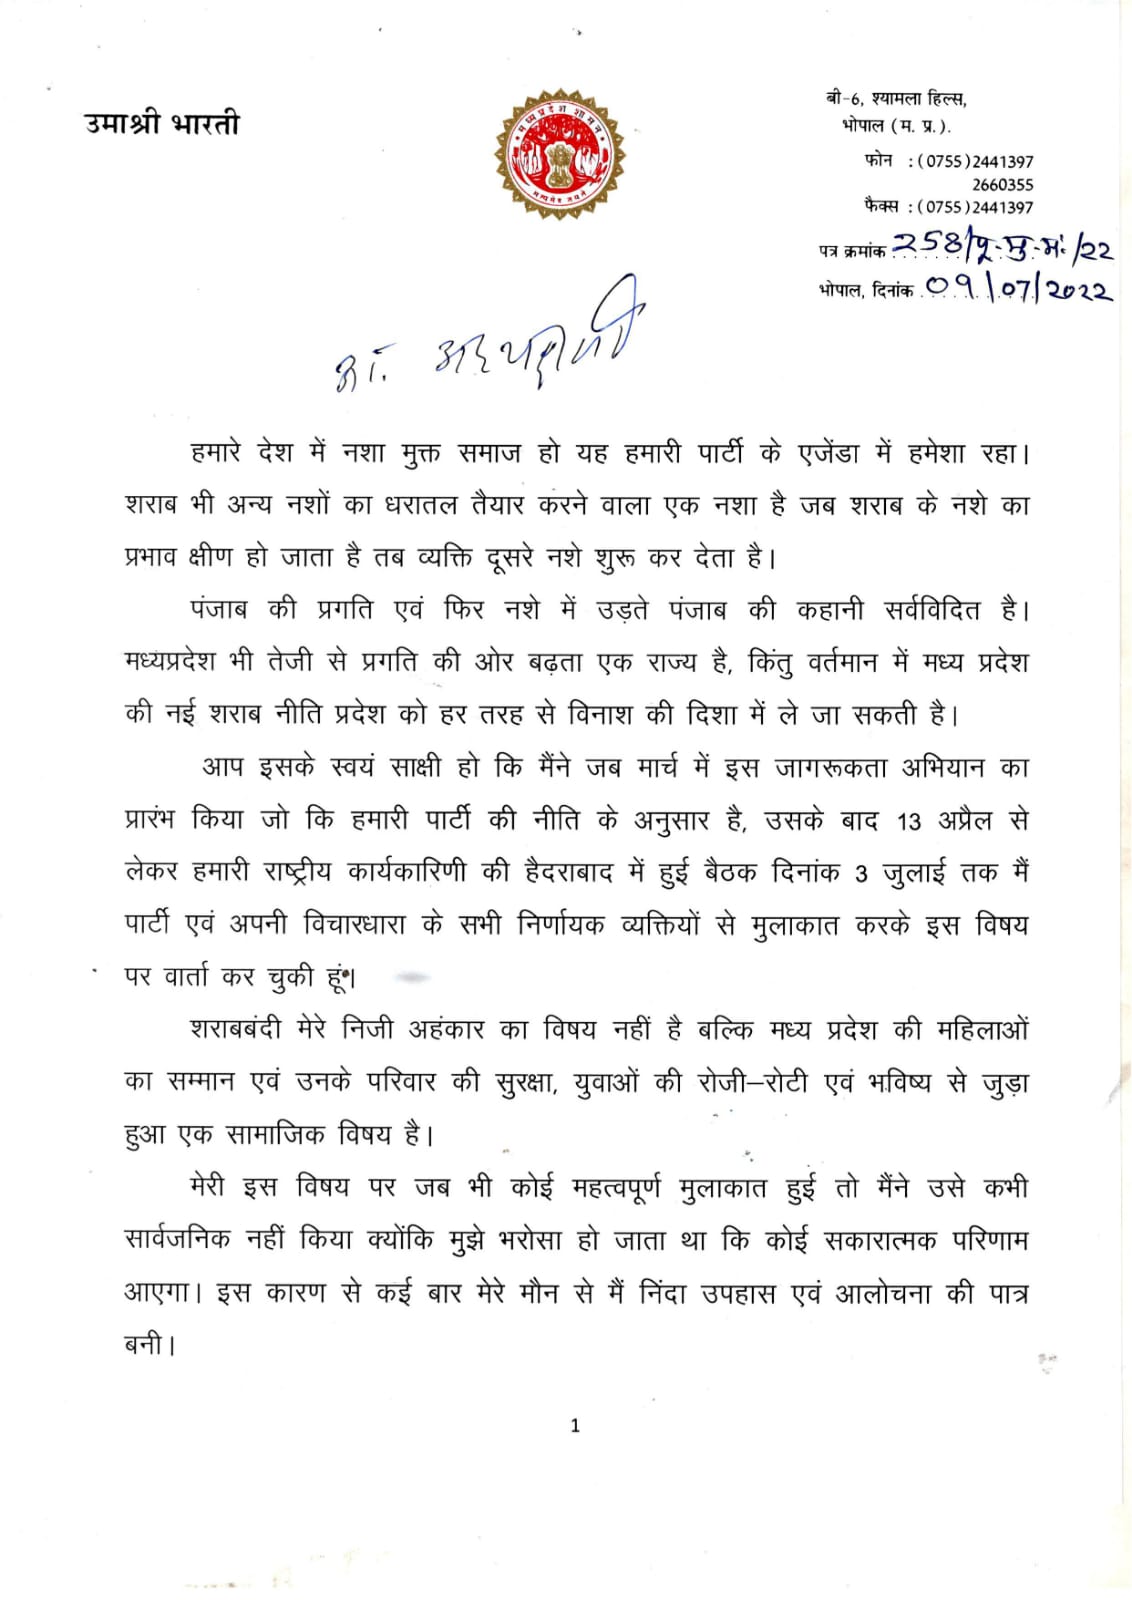 उमाश्री भारती
मध्यप्रदेश शासन
सत्यमेव जयते
बी-6, श्यामला हिल्स,
भोपाल (म. प्र.).
फोन : (0755)2441397
2660355
फैक्स : (0755)2441397
पत्र क्रमांक 258/पू.मु.मं./22
भोपाल, दिनांक 09/07/2022
मा. अध्यक्ष जी
हमारे देश में नशा मुक्त समाज हो यह हमारी पार्टी के एजेंडा में हमेशा रहा।
शराब भी अन्य नशों का धरातल तैयार करने वाला एक नशा है जब शराब के नशे का
प्रभाव क्षीण हो जाता है तब व्यक्ति दूसरे नशे शुरू कर देता है।
पंजाब की प्रगति एवं फिर नशे में उड़ते पंजाब की कहानी सर्वविदित है।
मध्यप्रदेश भी तेजी से प्रगति की ओर बढ़ता एक राज्य है, किंतु वर्तमान में मध्य प्रदेश
की नई शराब नीति प्रदेश को हर तरह से विनाश की दिशा में ले जा सकती है।
आप इसके स्वयं साक्षी हो कि मैंने जब मार्च में इस जागरूकता अभियान का
प्रारंभ किया जो कि हमारी पार्टी की नीति के अनुसार है, उसके बाद 13 अप्रैल से
लेकर हमारी राष्ट्रीय कार्यकारिणी की हैदराबाद में हुई बैठक दिनांक 3 जुलाई तक मैं
पार्टी एवं अपनी विचारधारा के सभी निर्णायक व्यक्तियों से मुलाकात करके इस विषय
पर वार्ता कर चुकी हूं।
शराबबंदी मेरे निजी अहंकार का विषय नहीं है बल्कि मध्य प्रदेश की महिलाओं
का सम्मान एवं उनके परिवार की सुरक्षा, युवाओं की रोजी–रोटी एवं भविष्य से जुड़ा
हुआ एक सामाजिक विषय है।
मेरी इस विषय पर जब भी कोई महत्वपूर्ण मुलाकात हुई तो मैंने उसे कभी
सार्वजनिक नहीं किया क्योंकि मुझे भरोसा हो जाता था कि कोई सकारात्मक परिणाम
आएगा। इस कारण से कई बार मेरे मौन से मैं निंदा उपहास एवं आलोचना की पात्र
बनी।
1